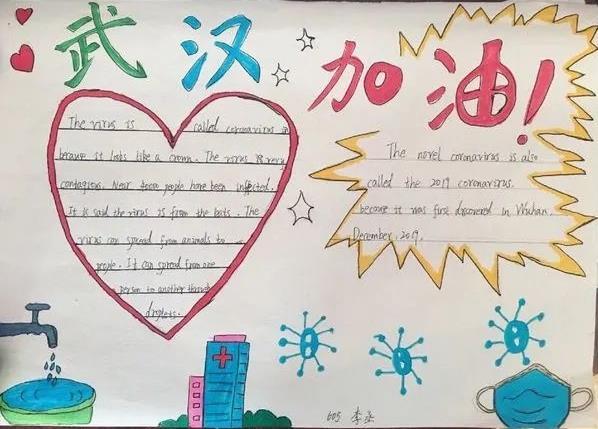 武汉加油!
The virus is called coronavirus
because it looks like a crown. The virus is very
contagious. Near people have been infected.
It is said the virus is from the bats. The
virus can spread from animals to
people. It can spread from one
person to another through
droplets.
The novel coronavirus is also
called the 2019 coronavirus.
because it was first discovered in Wuhan.
December, 2019.
605 李